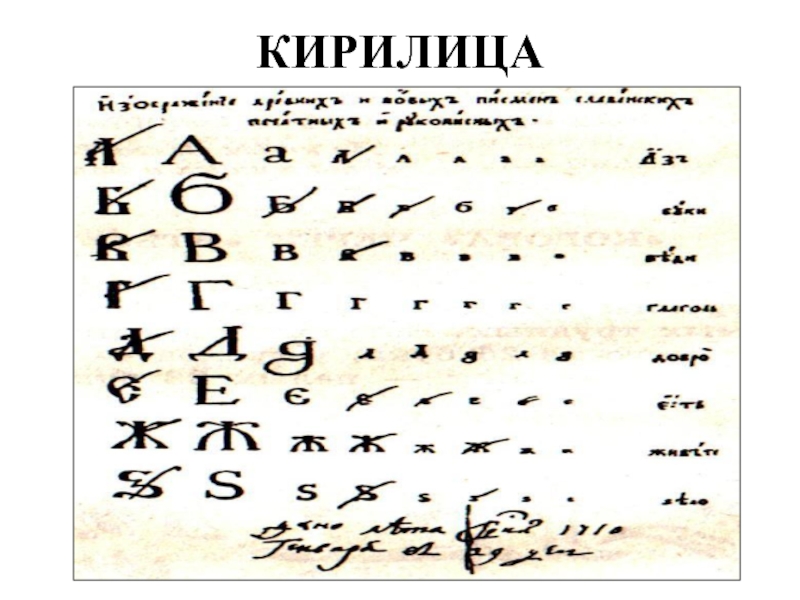 КИРИЛИЦА
Изображение древнихъ и новыхъ писменъ славенскихъ
печатныхъ и рукописныхъ.
А А а А А А а а А҆зъ
Б Б Б Б Б б буки
В В В В в в в вѣди
Г Г Г Г г г г г глаголь
Д Д д д д д д добро
Є Е є е е е е є҆сть
Ж Ж ж ж ж ж ж ж живѣте
Ѕ Ѕ ѕ ѕ ѕ ѕ ѕ ѕ ѕѣло
лѣта 1710
Генваря въ 29 день